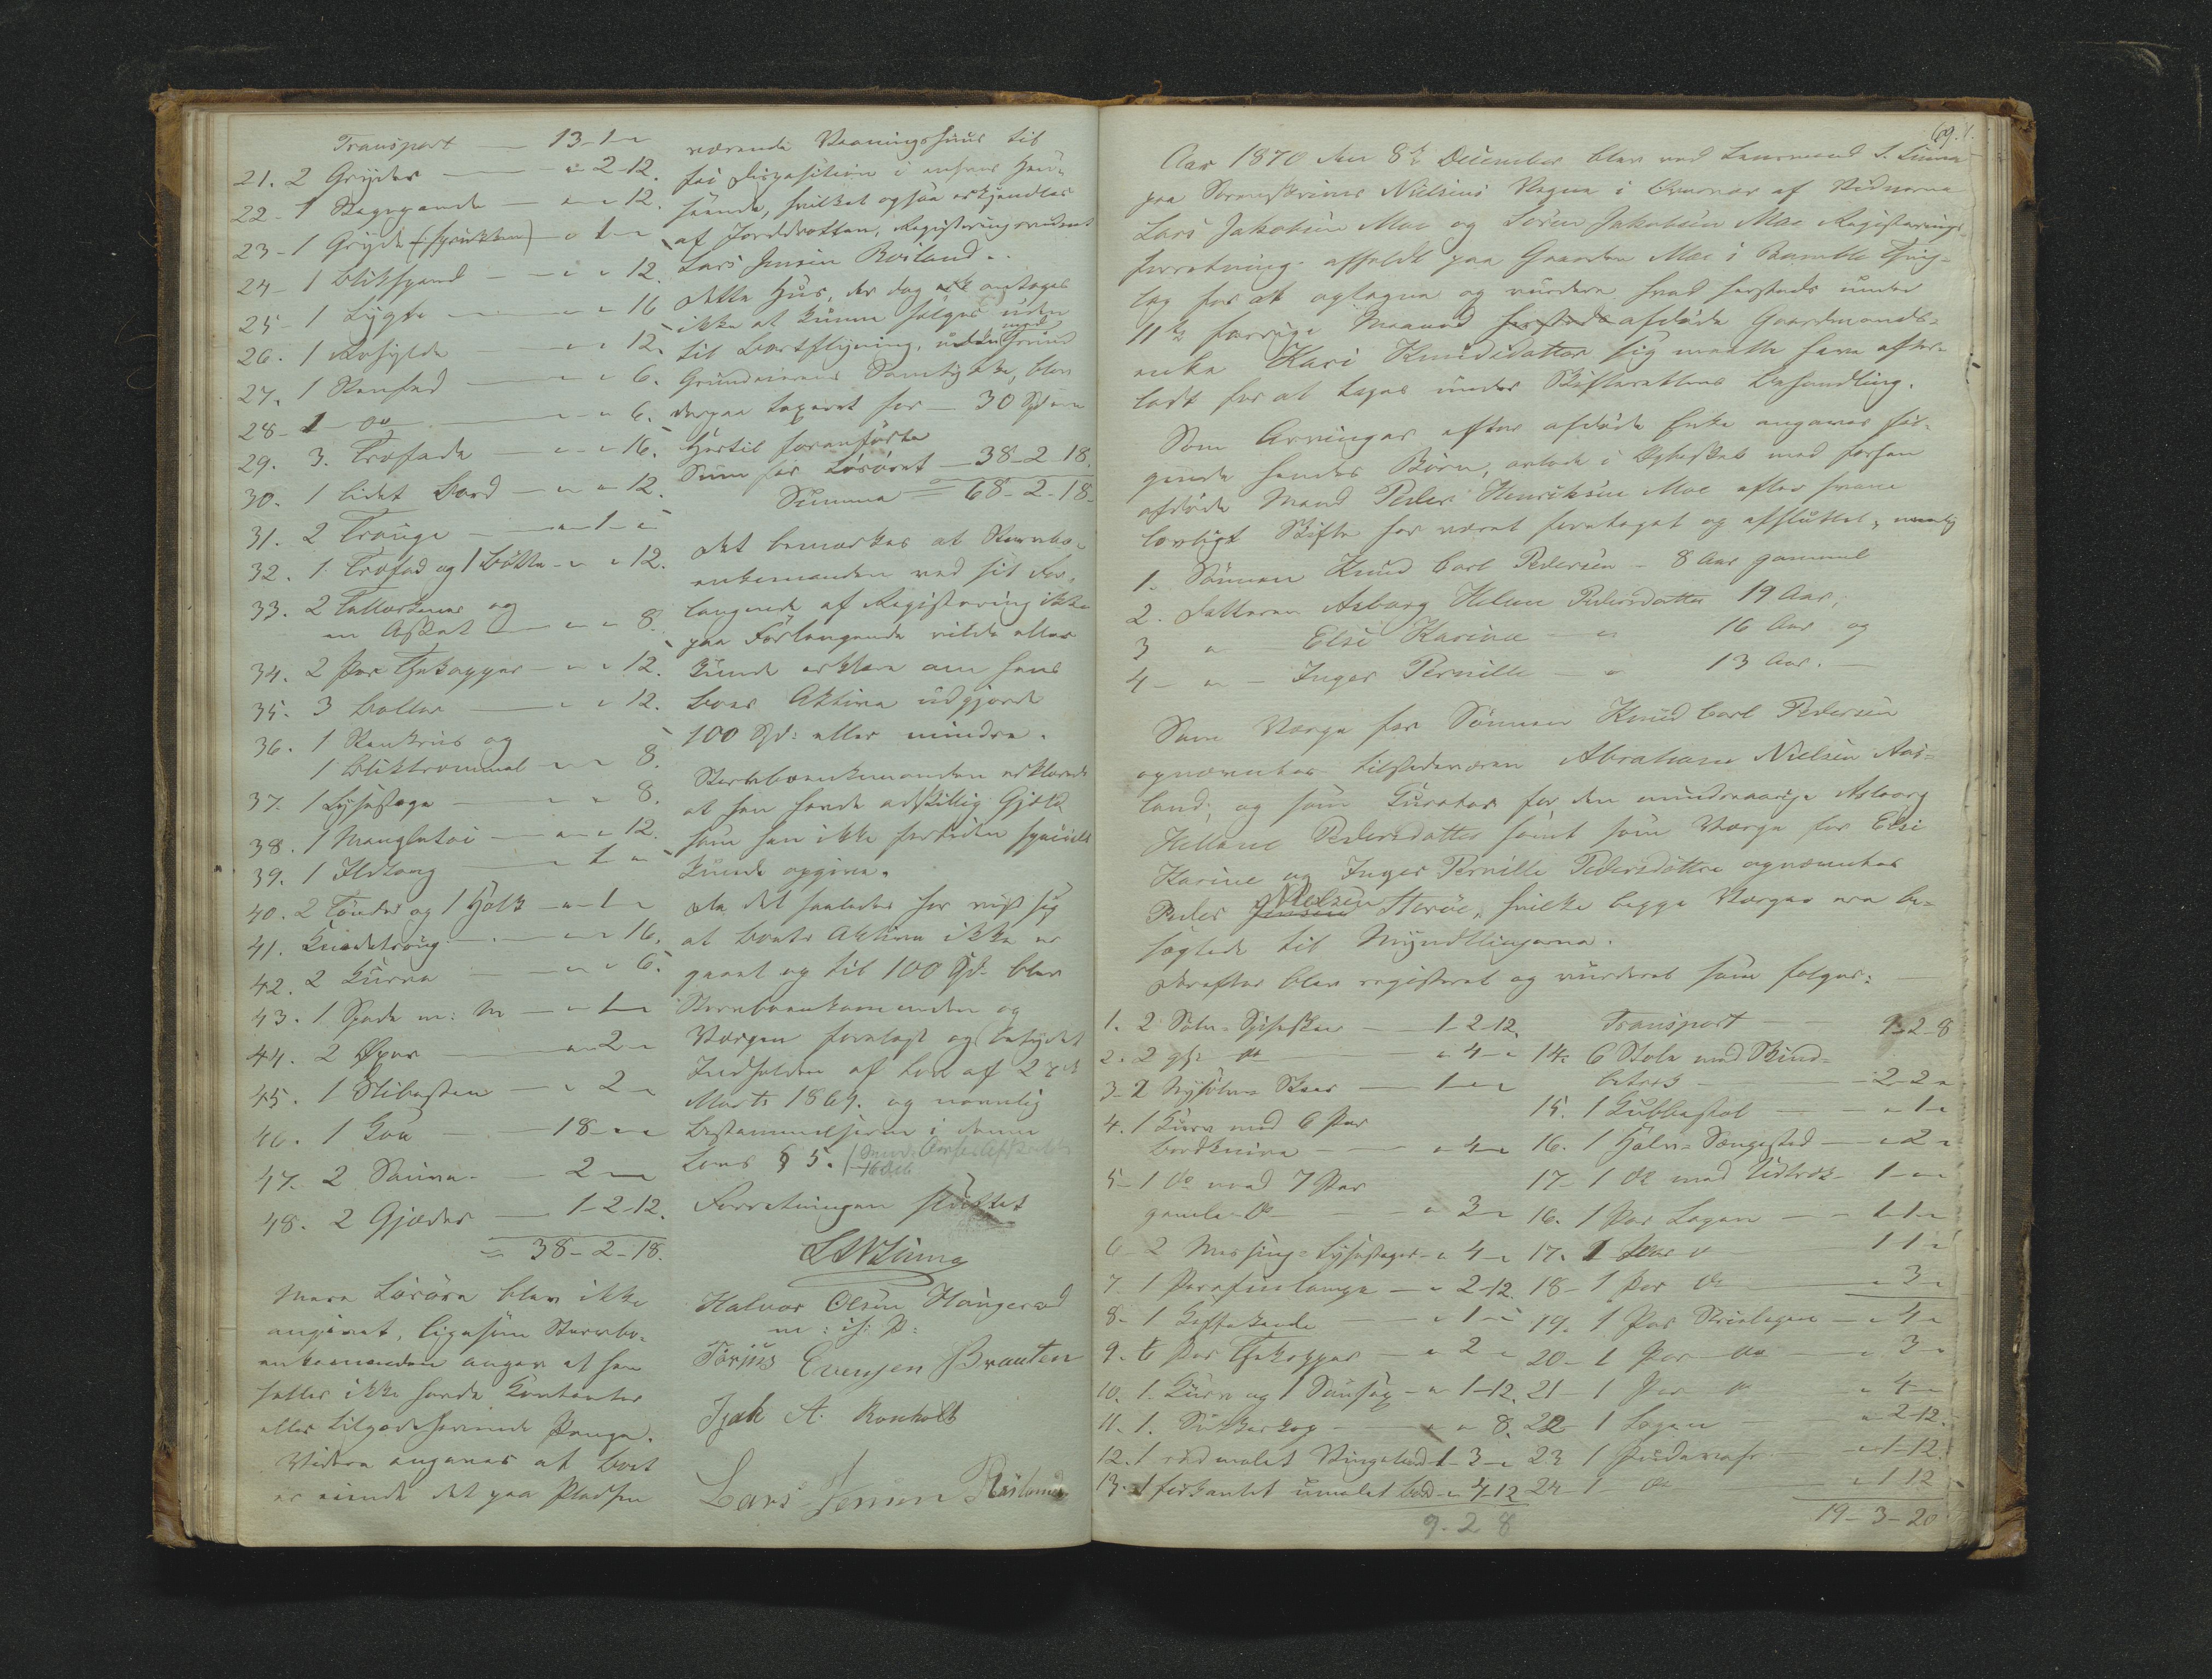 Transport — 13-1-"
21. 2 Gryder — "-2-12.
22- 1 Stegepande — "-"-12.
23- 1 Gryde (sprukken) — "-1-"
24- 1 Blikspand — "-"-12.
25- 1 Lygte — "-"-16
26. 1 Rshylde — "-"-12.
27. 1 Stenfad — "-"-6.
28- 1 do — "-"-6.
29. 3. Træfade — "-"-16.
30. 1 lidet Bord — "-"-12.
31. 2 Trouge — "-1-"
32. 1 Træfad og 1 Bøtte — "-"-12.
33. 2 Tallerkener og
en Asket — "-"-8.
34. 2 Par Thekopper — "-"-12.
35. 3 Boller — "-"-12.
36. 1 Stenkrus og
1 Bliktrommel — "-"-8.
37. 1 Lysestage — "-"-8.
38. 1 Mangletøi — "-"-12.
39. 1 Ildtang — "-1-"
40. 2 Tønder og 1 Holk — "-1-"
41. Knadetroug — "-"-16.
42. 2 Kurve — "-"-6.
43. 1 Spade m: M — "-1-"
44. 2 Øxer — "-2-"
45. 1 Slibesten — "-2-"
46. 1 Koe — 18-"-"
47. 2 Sauer — 2-"-"
48. 2 Gjeder — 1-2-12.
= 38-2-18.
Mere Løsøre blev ikke
angivet, ligesom Stervbo-
enkemanden angav at han
heller ikke havde Kontanter
eller tilgodehavende Penge.
Videre angaves at Boet
er eiende det paa Pladsen
værende Vaaningshuus til
fri Disposition i enhver Hen-
seende, hvilket ogsaa erkjendtes
af Jorddrotten, Registreringsvidnet
Lars Jensen Roiland.
Dette Hus, der dog ikke antages
ikke at kunne sælges uden
til Bortflytning, uden med Grund
Grundeierens Samtykke, blev
derpaa taxeret for — 30 Spd "-"
Hertil foranførte
Sum for Løsøret — 38-2-18.
Summa = 68-2-18-
Det bemærkes at Stervbo-
enkemanden ved sit For-
langende af Registrering ikke
paa Forlangende vilde eller
kunde erklære om hans
Boes Aktiva udgjorde
100 Spd: eller mindre.
Stervboenkemanden erklærede
at han havde adskillig Gjæld
som han ikke fortiden specielt
kunde opgive.
Da det saaledes har vist sig
at Boets Aktiva ikke er
gaaet op til 100 Spd. blev
Stervboenkemanden og
Værgen forelagt og betydet
Indholdet af Lov af 2
Marts 1869. og navnlig
Bestemmelserne i denne
Lovs § 5.
Forretningen sluttet
Halvor Olsen Haugerød
m: ih: P:
Torjus Evensen Braaten
Isak A. Ronholt
Lars Jensen Roiland
69.
Aar 1870 den 8de December blev ved Lensmand S. Linna
paa Sorenskriver Nielsens Vegne i Overvær af Vidnerne
Lars Jakobsen Moe og Søren Jakobsen Moe Registrerings-
forretning afholdt paa Gaarden Moe i Bamble Thing-
lag for at optegne og vurdere hvad herstæds under
11te forrige Maaned afdøde Gaardmands-
enke Kari Knudsdatter sig maatte have efter-
ladt for at tages under Skifterettens Behandling.
Som Arvinger efter afdøde Enke angaves føl-
gende hendes Børn, avlede i Ægteskab med forhen
afdøde Mand Peder Henriksen Moe efter hvem
lovligt Skifte har været foretaget og afsluttet, nemlig
1. Sønnen Knud Carl Pedersen — 8 Aar gammel
2. Datteren Asborg Helene Pedersdatter 19 Aar,
3 " Elsi Karine — " 16 Aar og
4- " - Inger Pernille — " 13 Aar.
Som Værge for Sønnen Knud Carl Pedersen
opnævntes tilstedeværen Abraham Nielsen Aas-
land, og som Kurator for den mindreaarige Asborg
Hellene Pedersdatter samt som Værge for Elsi
Karine og Inger Pernille Pedersdøttre opnævntes
Peder Jensen Nielsen Storøe, hvilke begge Værger ere be-
søgtede til Myndtlingerne.
Derefter blev registreret og vurderet som følger:
1. 2 Sølv-Spiseskeer — 1-2-12
2. 2 gl: do — "-4-"
3- 2 Nysølv Skeer — 1-"-"
4. 1 Kurv med 6 Par
Bordknive — "-4-"
5- 1 do med 7 Par
gamle do — "-3-"
6- 2 Messing-Lysestager — "-4-"
7. 1 Parafinlampe — "-2-12.
8- 1 Kaffekande — "-1-"
9. 6 Par Thekopper — "-2-"
10. 1. Kurv og 1 — "-1-12.
11. 1. Sukkerkop — "-"-8.
12. 1 rødmalet — 1-3-"
13. 1 firkantet umalet Bord — "-4-12
9. 2 8
Transport — 9-2-8
14. 6 Stole med Skind-
betræk — 2-2-"
15. 1 Kubbestol — "-1-"
16. 1 Halv-Sengested — "-2-"
17- 1 do med Udtræk — 1-"-"
16. 1 Par Lagen — 1-1-"
17. 1 Par " 1 1-"
18- 1 Par do — "-3-"
19. 1 Par Strielagen — "-4-"
20- 1 Par do — "-3-"
21- 1 Par do — "-4-"
22- 1 Lagen — "-2-12.
23 1 Pudevaar — "-1-12.
24- 1 do — "-1-12
19-3-20